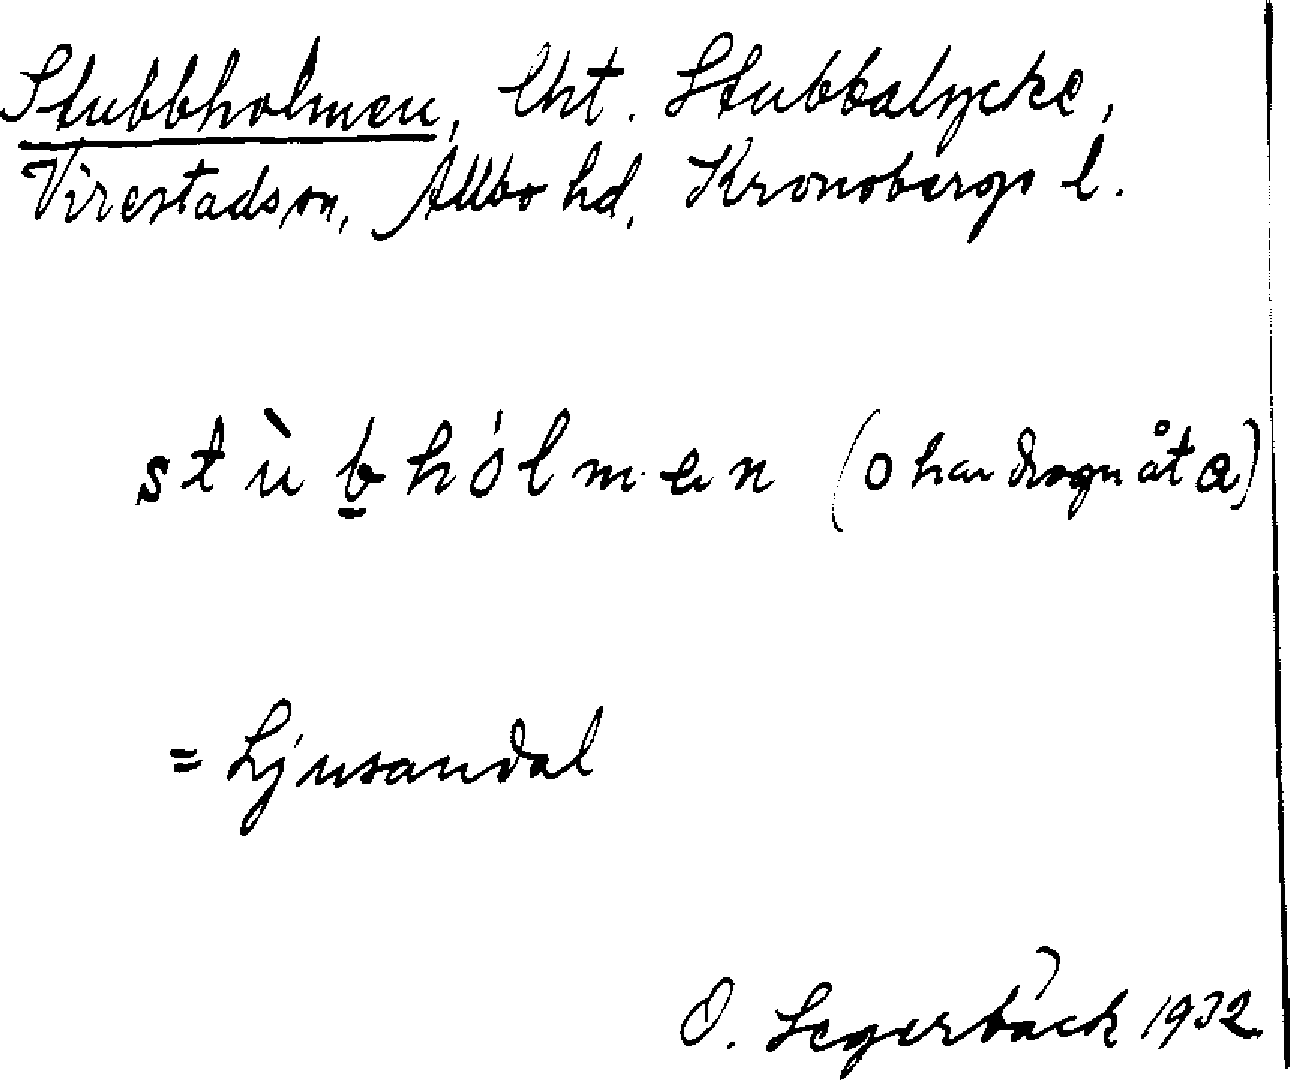 Stubbholmen, lht. Stubbalycke,
Virestads sn, Allbo hd, Kronobergs l.
stùbhólmen (o har dragn åt a)
= Ljusandal
O. Segerbäck 1932